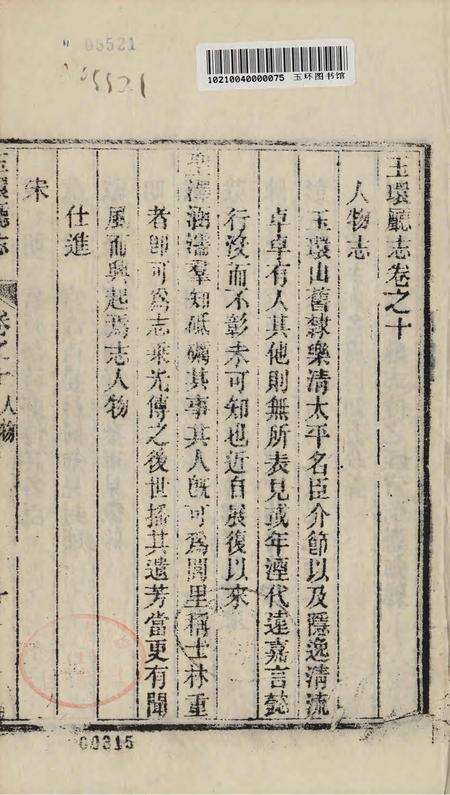 05521
05521
10210040000075 玉环图书馆
玉環廳志卷之十
人物志
玉環山舊隸樂清太平名臣介節以及隱逸清流
卓卓有人其他則無所表見或年湮代遠嘉言懿
行沒而不彰未可知也近自展復以來
聖澤涵濡羣知砥礪其事其人旣可爲閭里稱士林重
者卽可爲志乘光傳之後世搖其遺芳當更有聞
風而興起焉志人物
仕進
宋
玉環廳志
卷之十 人物
00315